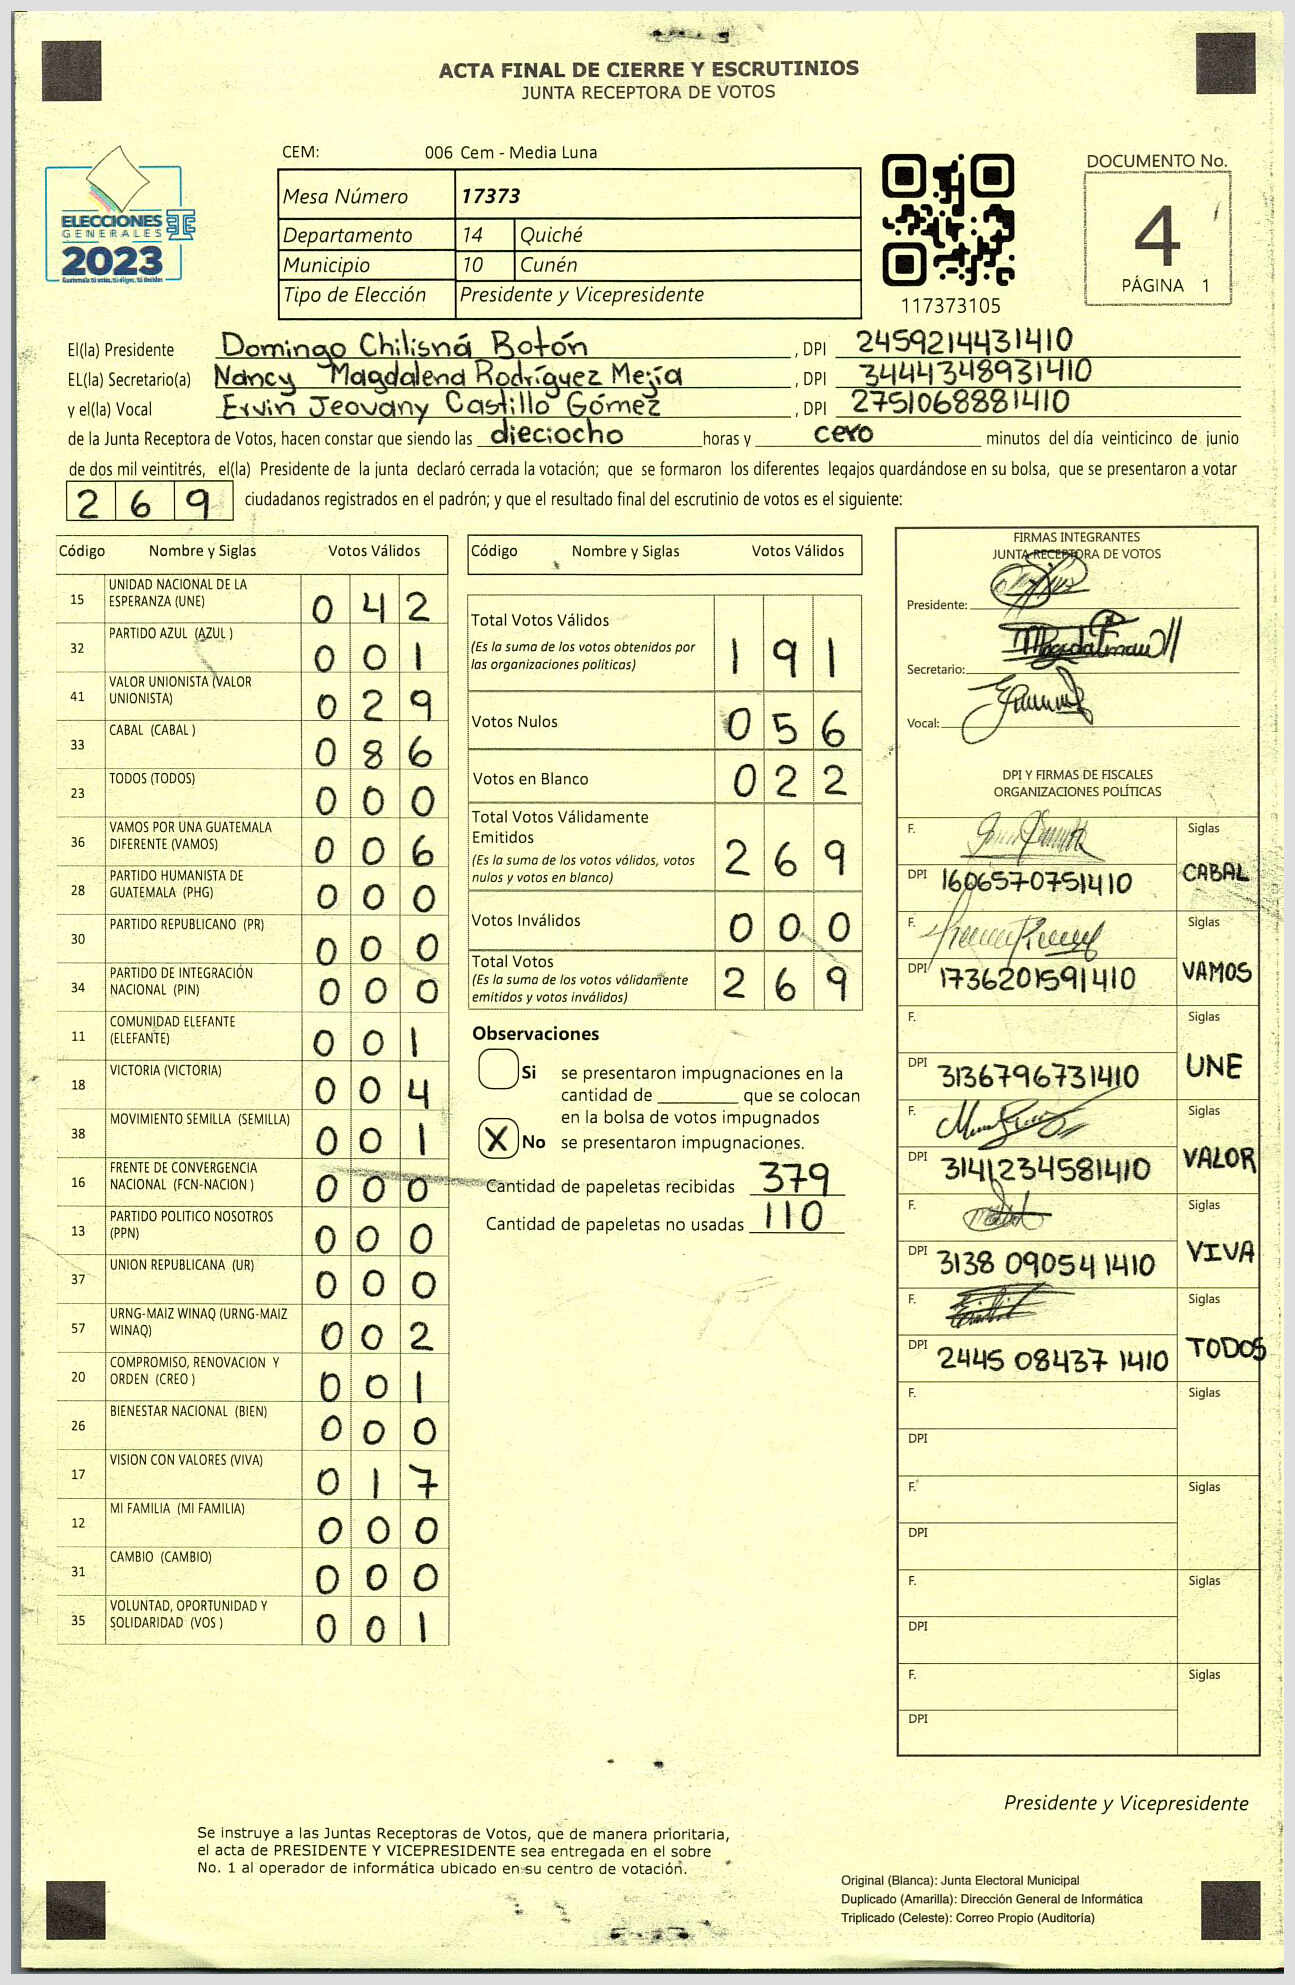 ACTA FINAL DE CIERRE Y ESCRUTINIOS
JUNTA RECEPTORA DE VOTOS
ELECCIONES
GENERALES
2023
CEM: 006 Cem - Media Luna
Mesa Número 17373
Departamento 14 Quiché
Municipio 10 Cunén
Tipo de Elección Presidente y Vicepresidente
117373105
DOCUMENTO No.
4
PÁGINA 1
El(la) Presidente Domingo Chilisná Botón , DPI 2459214431410
EL(la) Secretario(a) Nancy Magdalena Rodríguez Mejía , DPI 3444348931410
y el(la) Vocal Ervin Jeovany Castillo Gómez , DPI 2751068881410
de la Junta Receptora de Votos, hacen constar que siendo las dieciocho horas y cero minutos del día veinticinco de junio
de dos mil veintitrés, el(la) Presidente de la junta declaró cerrada la votación; que se formaron los diferentes legajos quardándose en su bolsa, que se presentaron a votar
269 ciudadanos registrados en el padrón; y que el resultado final del escrutinio de votos es el siguiente:
Código Nombre y Siglas Votos Válidos
15 UNIDAD NACIONAL DE LA ESPERANZA (UNE) 042
32 PARTIDO AZUL (AZUL ) 001
41 VALOR UNIONISTA (VALOR UNIONISTA) 029
33 CABAL (CABAL ) 086
23 TODOS (TODOS) 000
36 VAMOS POR UNA GUATEMALA DIFERENTE (VAMOS) 006
28 PARTIDO HUMANISTA DE GUATEMALA (PHG) 000
30 PARTIDO REPUBLICANO (PR) 000
34 PARTIDO DE INTEGRACIÓN NACIONAL (PIN) 000
11 COMUNIDAD ELEFANTE (ELEFANTE) 001
18 VICTORIA (VICTORIA) 004
38 MOVIMIENTO SEMILLA (SEMILLA) 001
16 FRENTE DE CONVERGENCIA NACIONAL (FCN-NACION ) 000
13 PARTIDO POLITICO NOSOTROS (PPN) 000
37 UNION REPUBLICANA (UR) 000
57 URNG-MAIZ WINAQ (URNG-MAIZ WINAQ) 002
20 COMPROMISO, RENOVACION Y ORDEN (CREO ) 001
26 BIENESTAR NACIONAL (BIEN) 000
17 VISION CON VALORES (VIVA) 017
12 MI FAMILIA (MI FAMILIA) 000
31 CAMBIO (CAMBIO) 000
35 VOLUNTAD, OPORTUNIDAD Y SOLIDARIDAD (VOS ) 001
Código Nombre y Siglas Votos Válidos
Total Votos Válidos 191
(Es la suma de los votos obtenidos por
las organizaciones políticas)
Votos Nulos 056
Votos en Blanco 022
Total Votos Válidamente
Emitidos 269
(Es la suma de los votos válidos, votos
nulos y votos en blanco)
Votos Inválidos 000
Total Votos 269
(Es la suma de los votos válidamente
emitidos y votos inválidos)
Observaciones
Si se presentaron impugnaciones en la
cantidad de ________ que se colocan
en la bolsa de votos impugnados
X No se presentaron impugnaciones.
Cantidad de papeletas recibidas 379
Cantidad de papeletas no usadas 110
FIRMAS INTEGRANTES
JUNTA RECEPTORA DE VOTOS
Presidente:
Secretario:
Vocal:
DPI Y FIRMAS DE FISCALES
ORGANIZACIONES POLÍTICAS
F. Siglas
DPI 1606570751410 CABAL
F. Siglas
DPI 1736201591410 VAMOS
F. Siglas
DPI 3136796731410 UNE
F. Siglas
DPI 3141234581410 VALOR
F. Siglas
DPI 3138 09054 1410 VIVA
F. Siglas
DPI 2445 08437 1410 TODOS
F. Siglas
DPI
F. Siglas
DPI
F. Siglas
DPI
F. Siglas
DPI
Presidente y Vicepresidente
Se instruye a las Juntas Receptoras de Votos, que de manera prioritaria,
el acta de PRESIDENTE Y VICEPRESIDENTE sea entregada en el sobre
No. 1 al operador de informática ubicado en su centro de votación.
Original (Blanca): Junta Electoral Municipal
Duplicado (Amarilla): Dirección General de Informática
Triplicado (Celeste): Correo Propio (Auditoría)